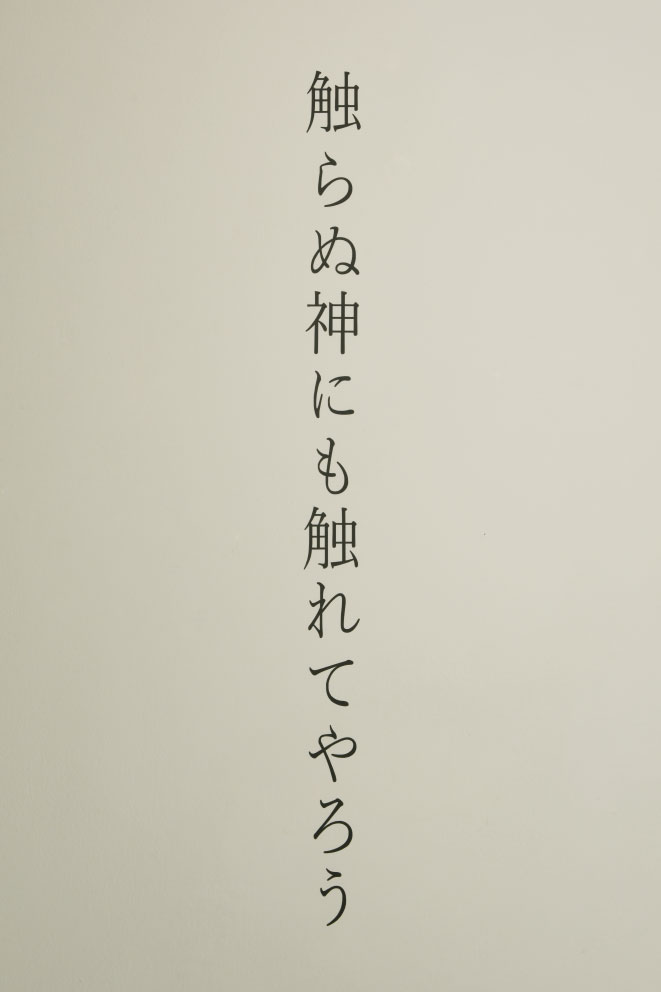 触らぬ神にも触れてやろう